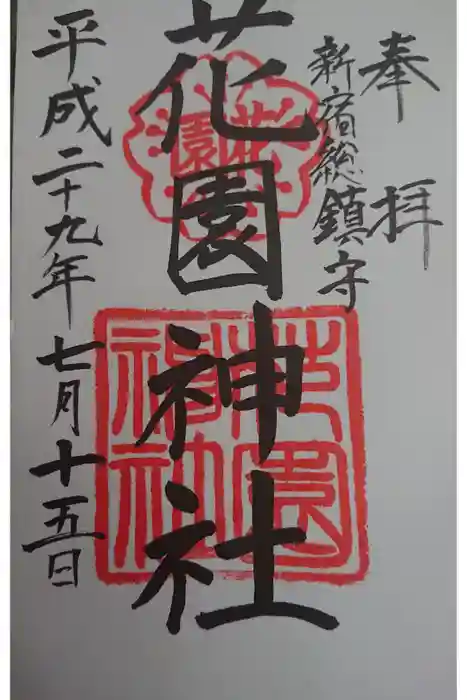 奉拝
新宿総鎮守
花園
花園神社
花園神社
平成二十九年七月十五日